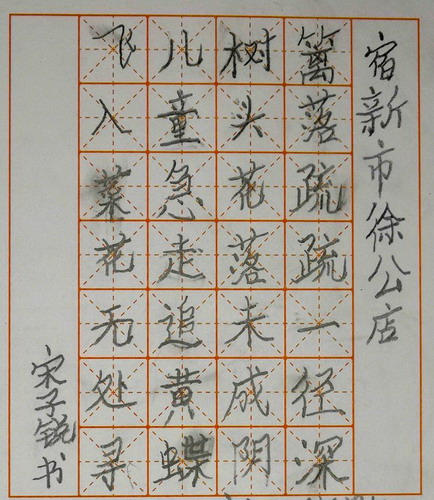 宿新市徐公店
篱落疏疏一径深
树头花落未成阴
儿童急走追黄蝶
飞入菜花无处寻
宋子锐书